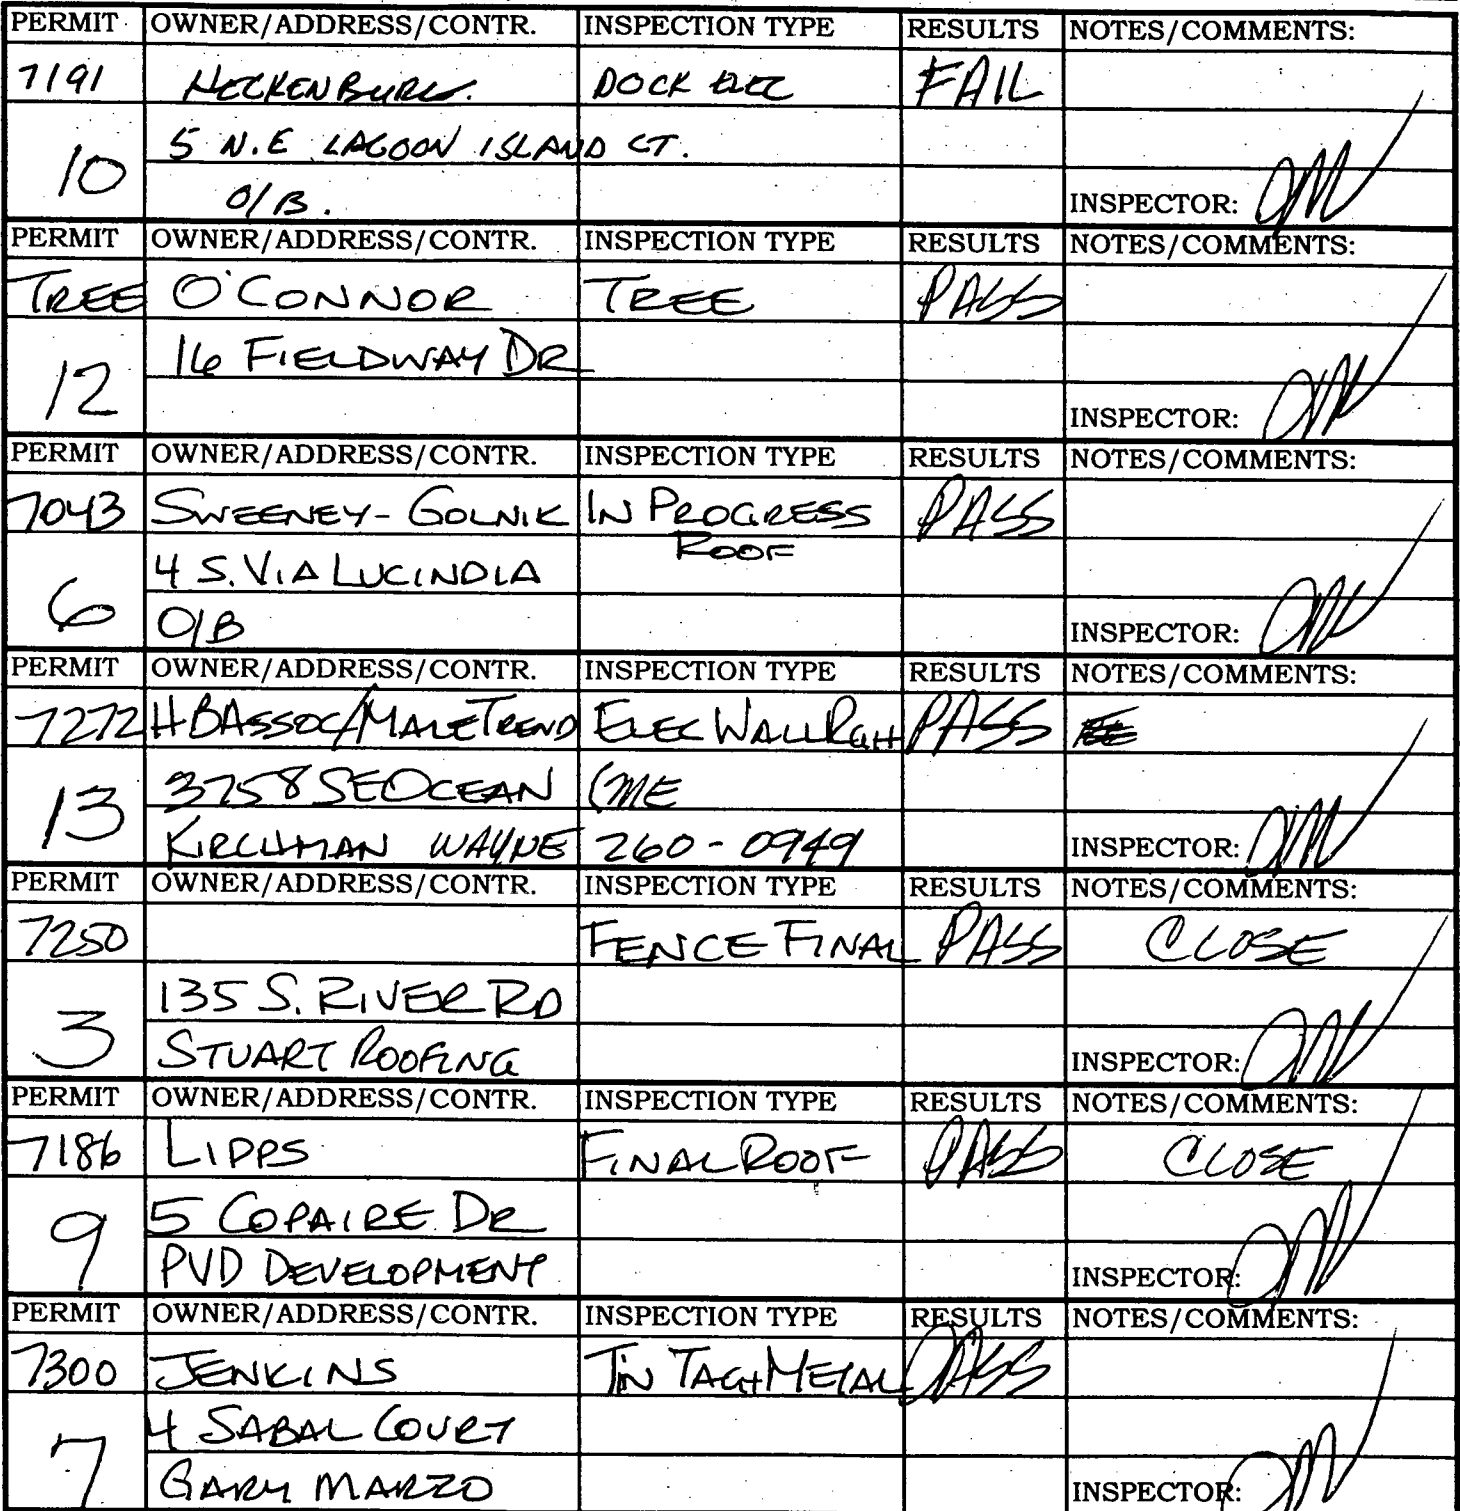 PERMIT OWNER/ADDRESS/CONTR. INSPECTION TYPE RESULTS NOTES/COMMENTS:
7191 HECKENBURG. DOCK ELEC FAIL
5 N.E LAGOON ISLAND CT.
10 O/B. INSPECTOR:
PERMIT OWNER/ADDRESS/CONTR. INSPECTION TYPE RESULTS NOTES/COMMENTS:
TREE O'CONNOR TREE PASS
16 FIELDWAY DR
12 INSPECTOR:
PERMIT OWNER/ADDRESS/CONTR. INSPECTION TYPE RESULTS NOTES/COMMENTS:
7043 SWEENEY-GOLNIK IN PROGRESS PASS
ROOF
4 S. VIA LUCINDIA
6 O/B INSPECTOR:
PERMIT OWNER/ADDRESS/CONTR. INSPECTION TYPE RESULTS NOTES/COMMENTS:
7272 HBASSOC/MALETREND ELEC WALL RGH PASS
3758 SE OCEAN
13 KIRCHMAN WAYNE 260-0949 INSPECTOR:
PERMIT OWNER/ADDRESS/CONTR. INSPECTION TYPE RESULTS NOTES/COMMENTS:
7250 FENCE FINAL PASS CLOSE
135 S. RIVER RD
3 STUART ROOFING INSPECTOR:
PERMIT OWNER/ADDRESS/CONTR. INSPECTION TYPE RESULTS NOTES/COMMENTS:
7186 LIPPS FINAL ROOF PASS CLOSE
5 COPAIRE DR
9 PVD DEVELOPMENT INSPECTOR:
PERMIT OWNER/ADDRESS/CONTR. INSPECTION TYPE RESULTS NOTES/COMMENTS:
7300 JENKINS TIN TAG+METAL PASS
4 SABAL COURT
7 GARY MARZO INSPECTOR: